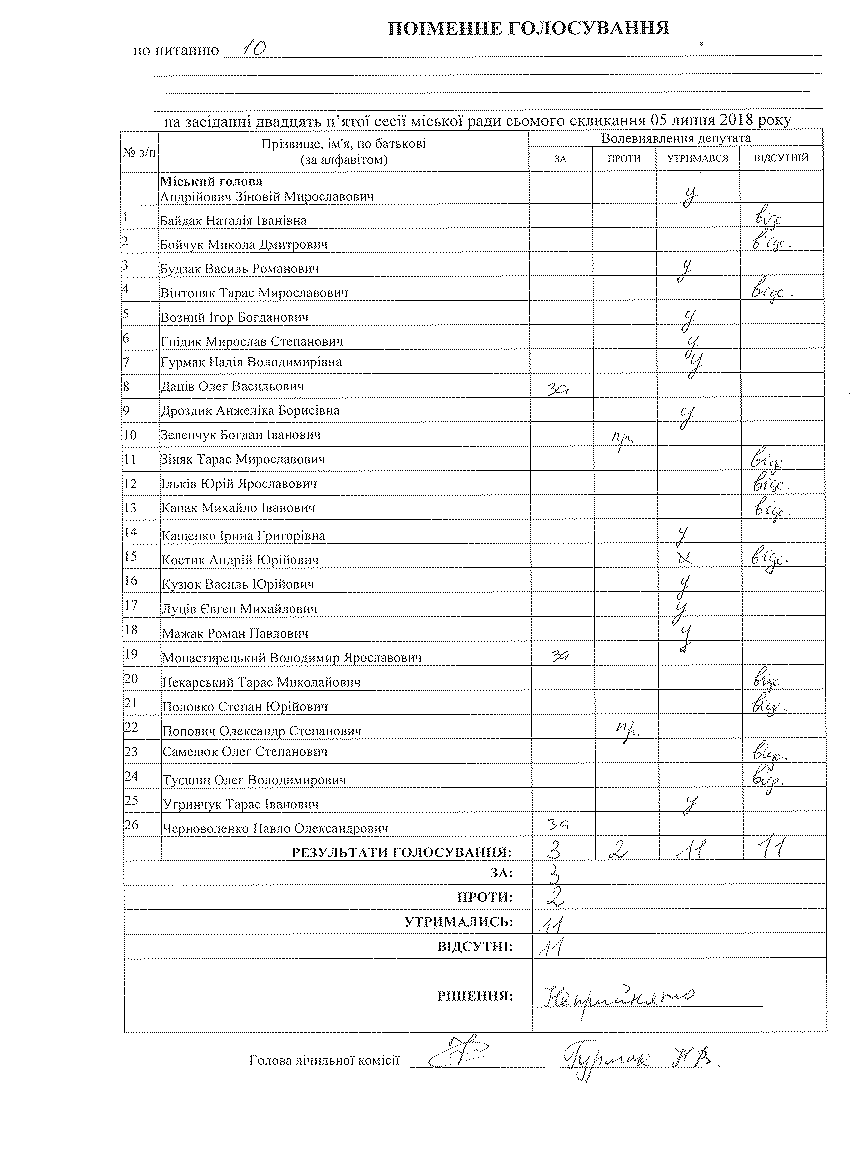 ПОІМЕННЕ ГОЛОСУВАННЯ
по питанню 10
на засіданні двадцять п'ятої сесії міської ради сьомого скликання 05 липня 2018 року
№ з/п Прізвище, ім'я, по батькові (за алфавітом) Волевиявлення депутата
ЗА ПРОТИ УТРИМАВСЯ ВІДСУТНІЙ
Міський голова
Андрійович Зіновій Мирославович у
1 Байдак Наталія Іванівна відс
2 Бойчук Микола Дмитрович відс.
3 Будзак Василь Романович у
4 Вінтоняк Тарас Мирославович відс.
5 Возний Ігор Богданович у
6 Гнідик Мирослав Степанович у
7 Гурмак Надія Володимирівна у
8 Даців Олег Васильович за
9 Дроздик Анжеліка Борисівна у
10 Зеленчук Богдан Іванович пр.
11 Зіняк Тарас Мирославович відс
12 Ільків Юрій Ярославович відс.
13 Капак Михайло Іванович відс.
14 Кащенко Ірина Григорівна у
15 Костик Андрій Юрійович відс.
16 Кузюк Василь Юрійович у
17 Луців Євген Михайлович у
18 Мажак Роман Павлович у
19 Монастирецький Володимир Ярославович за
20 Пекарський Тарас Миколайович відс
21 Половко Степан Юрійович відс.
22 Попович Олександр Степанович пр.
23 Саменюк Олег Степанович відс.
24 Олег Володимирович відс.
25 Угринчук Тарас Іванович у
26 Черноволенко Павло Олександрович за
РЕЗУЛЬТАТИ ГОЛОСУВАННЯ: 3 2 11 11
ЗА: 3
ПРОТИ: 2
УТРИМАЛИСЬ: 11
ВІДСУТНІ: 11
РІШЕННЯ: Неприйнято
Голова лічильної комісії Гурмак Н.В.